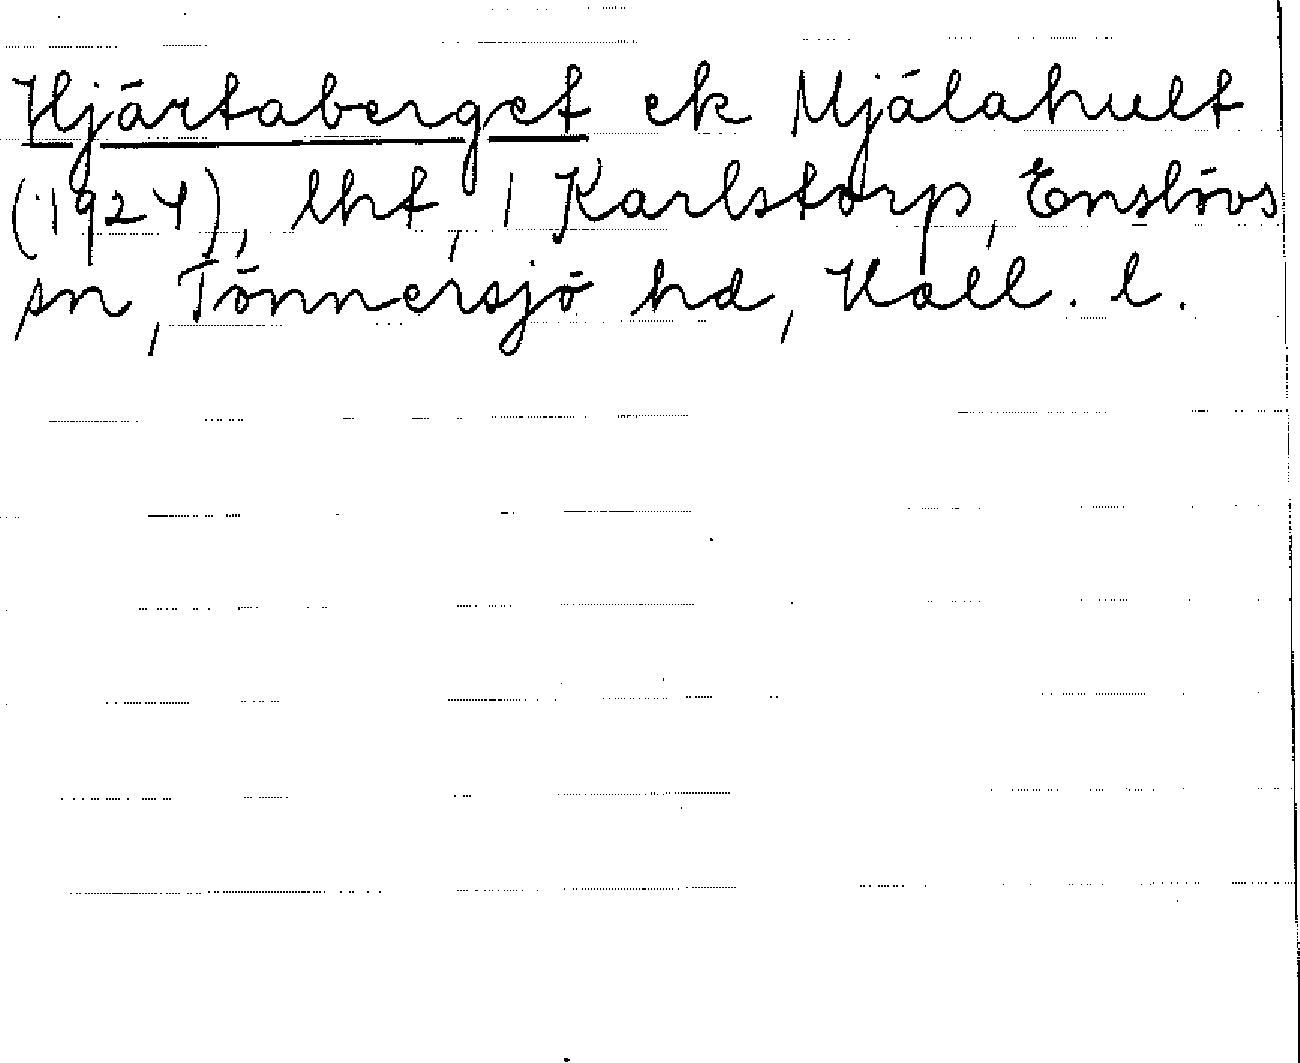 Hjärtaberget ek Mjälahult
(1924), lht, i Karlstorp, Enslövs
sn, Tönnersjö hd, Hall. l.